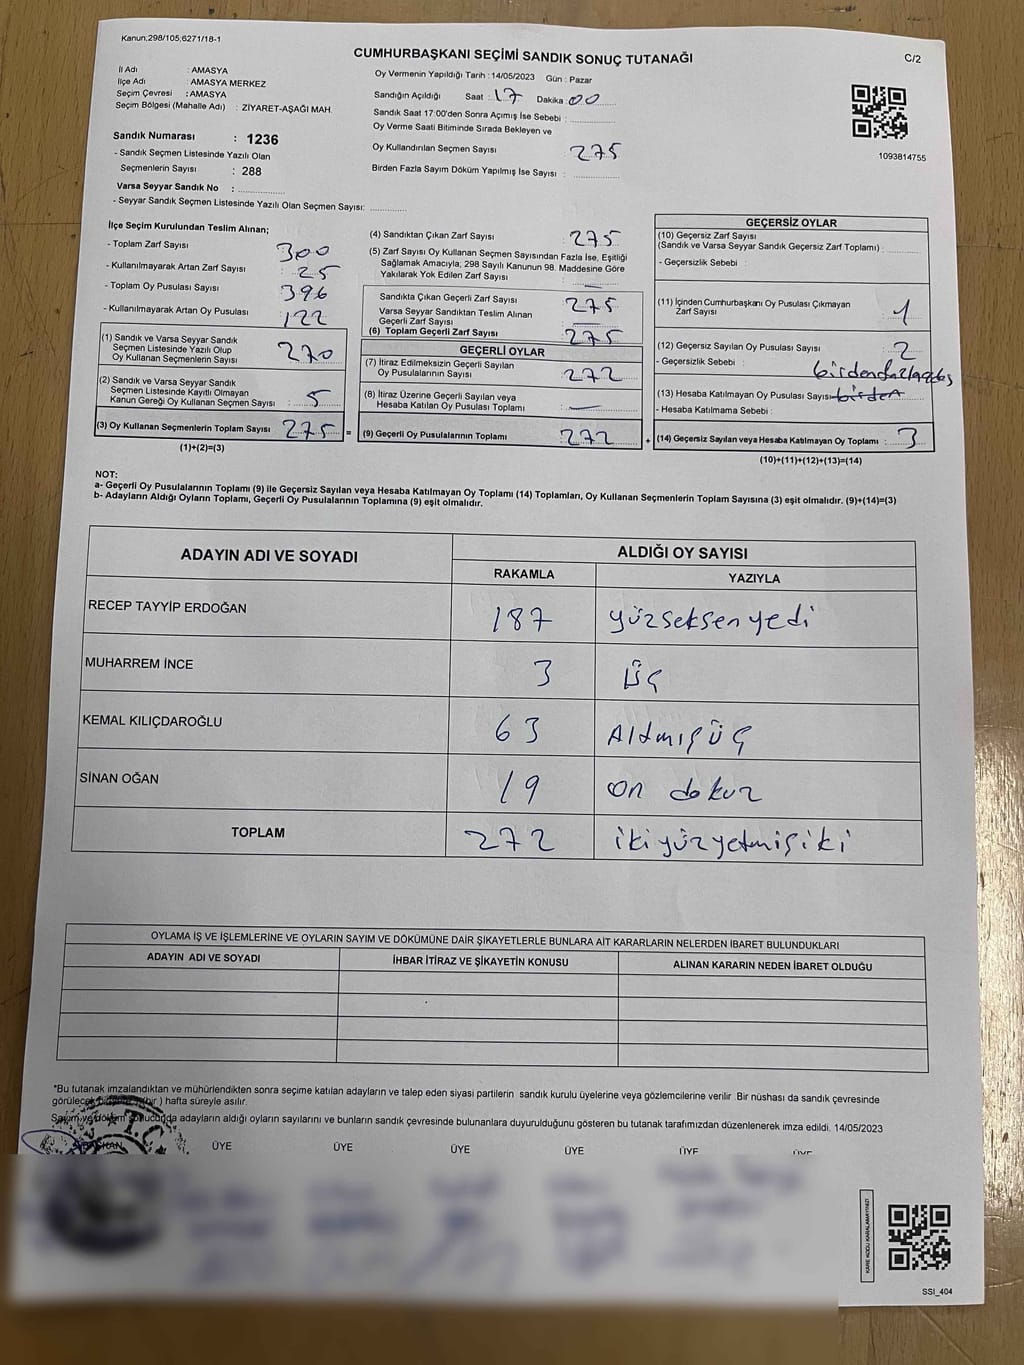 Kanun;298/105;6271/18-1
CUMHURBAŞKANI SEÇİMİ SANDIK SONUÇ TUTANAĞI
C/2
İl Adı : AMASYA
İlçe Adı : AMASYA MERKEZ
Seçim Çevresi : AMASYA
Seçim Bölgesi (Mahalle Adı) : ZİYARET-AŞAĞI MAH.
Sandık Numarası : 1236
- Sandık Seçmen Listesinde Yazılı Olan
Seçmenlerin Sayısı : 288
Varsa Seyyar Sandık No :
- Seyyar Sandık Seçmen Listesinde Yazılı Olan Seçmen Sayısı:
Oy Vermenin Yapıldığı Tarih : 14/05/2023 Gün : Pazar
Sandığın Açıldığı Saat : 17 Dakika 00
Sandık Saat 17:00'den Sonra Açımış İse Sebebi :
Oy Verme Saati Bitiminde Sırada Bekleyen ve
Oy Kullandırılan Seçmen Sayısı 275
Birden Fazla Sayım Döküm Yapılmış İse Sayısı :
1093814755
İlçe Seçim Kurulundan Teslim Alınan;
- Toplam Zarf Sayısı 300
- Kullanılmayarak Artan Zarf Sayısı : 25
- Toplam Oy Pusulası Sayısı 396
- Kullanılmayarak Artan Oy Pusulası 122
(1) Sandık ve Varsa Seyyar Sandık
Seçmen Listesinde Yazılı Olup
Oy Kullanan Seçmenlerin Sayısı : 270
(2) Sandık ve Varsa Seyyar Sandık
Seçmen Listesinde Kayıtlı Olmayan
Kanun Gereği Oy Kullanan Seçmen Sayısı : 5
(3) Oy Kullanan Seçmenlerin Toplam Sayısı : 275 =
(1)+(2)=(3)
(4) Sandıktan Çıkan Zarf Sayısı : 275
(5) Zarf Sayısı Oy Kullanan Seçmen Sayısından Fazla İse, Eşitliği
Sağlamak Amacıyla, 298 Sayılı Kanunun 98. Maddesine Göre
Yakılarak Yok Edilen Zarf Sayısı : —
Sandıkta Çıkan Geçerli Zarf Sayısı : 275
Varsa Seyyar Sandıktan Teslim Alınan
Geçerli Zarf Sayısı :
(6) Toplam Geçerli Zarf Sayısı : 275
GEÇERLİ OYLAR
(7) İtiraz Edilmeksizin Geçerli Sayılan
Oy Pusulalarının Sayısı : 272
(8) İtiraz Üzerine Geçerli Sayılan veya
Hesaba Katılan Oy Pusulası Toplamı : —
(9) Geçerli Oy Pusulalarının Toplamı : 272 +
GEÇERSİZ OYLAR
(10) Geçersiz Zarf Sayısı
(Sandık ve Varsa Seyyar Sandık Geçersiz Zarf Toplamı) :
- Geçersizlik Sebebi :
(11) İçinden Cumhurbaşkanı Oy Pusulası Çıkmayan
Zarf Sayısı : 1
(12) Geçersiz Sayılan Oy Pusulası Sayısı : 2
- Geçersizlik Sebebi :
(13) Hesaba Katılmayan Oy Pusulası Sayısı : birden
- Hesaba Katılmama Sebebi :
(14) Geçersiz Sayılan veya Hesaba Katılmayan Oy Toplamı : 3
(10)+(11)+(12)+(13)=(14)
NOT:
a- Geçerli Oy Pusulalarının Toplamı (9) ile Geçersiz Sayılan veya Hesaba Katılmayan Oy Toplamı (14) Toplamları, Oy Kullanan Seçmenlerin Toplam Sayısına (3) eşit olmalıdır. (9)+(14)=(3)
b- Adayların Aldığı Oyların Toplamı, Geçerli Oy Pusulalarının Toplamına (9) eşit olmalıdır.
ADAYIN ADI VE SOYADI ALDIĞI OY SAYISI
RAKAMLA YAZIYLA
RECEP TAYYİP ERDOĞAN 187 yüzseksenyedi
MUHARREM İNCE 3 üç
KEMAL KILIÇDAROĞLU 63 Altmışüç
SİNAN OĞAN 19 on dokuz
TOPLAM 272 ikiyüzyetmişiki
OYLAMA İŞ VE İŞLEMLERİNE VE OYLARIN SAYIM VE DÖKÜMÜNE DAİR ŞİKAYETLERLE BUNLARA AİT KARARLARIN NELERDEN İBARET BULUNDUKLARI
ADAYIN ADI VE SOYADI İHBAR İTİRAZ VE ŞİKAYETİN KONUSU ALINAN KARARIN NEDEN İBARET OLDUĞU
*Bu tutanak imzalandıktan ve mühürlendikten sonra seçime katılan adayların ve talep eden siyasi partilerin sandık kurulu üyelerine veya gözlemcilerine verilir. Bir nüshası da sandık çevresinde
görülecek bir yere (bir) hafta süreyle asılır.
Sayım ve döküm sonucunda adayların aldığı oyların sayılarını ve bunların sandık çevresinde bulunanlara duyurulduğunu gösteren bu tutanak tarafımızdan düzenlenerek imza edildi. 14/05/2023
BAŞKAN ÜYE ÜYE ÜYE ÜYE ÜYE ÜYE
T.C.
KARE KODU KARALAMAYINIZ!
SSI_404